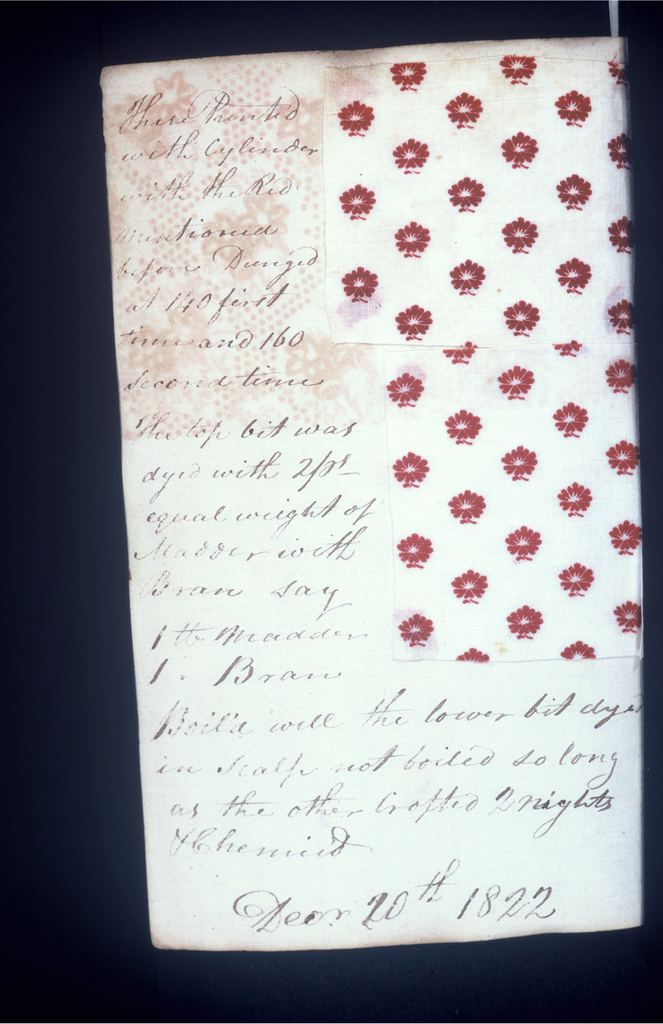 These Printed
with Cylinder
with the Red
mentioned
before Dunged
at 140 first
time and 160
second time
The top bit was
dyed with 2/prs
equal weight of
Madder with
Bran say
1 lb Madder
1 " Bran
Boil'd well the lower bit dyed
in not boiled so long
as the other Crofted 2 nights
& Chemic'd
Decr 20th 1822